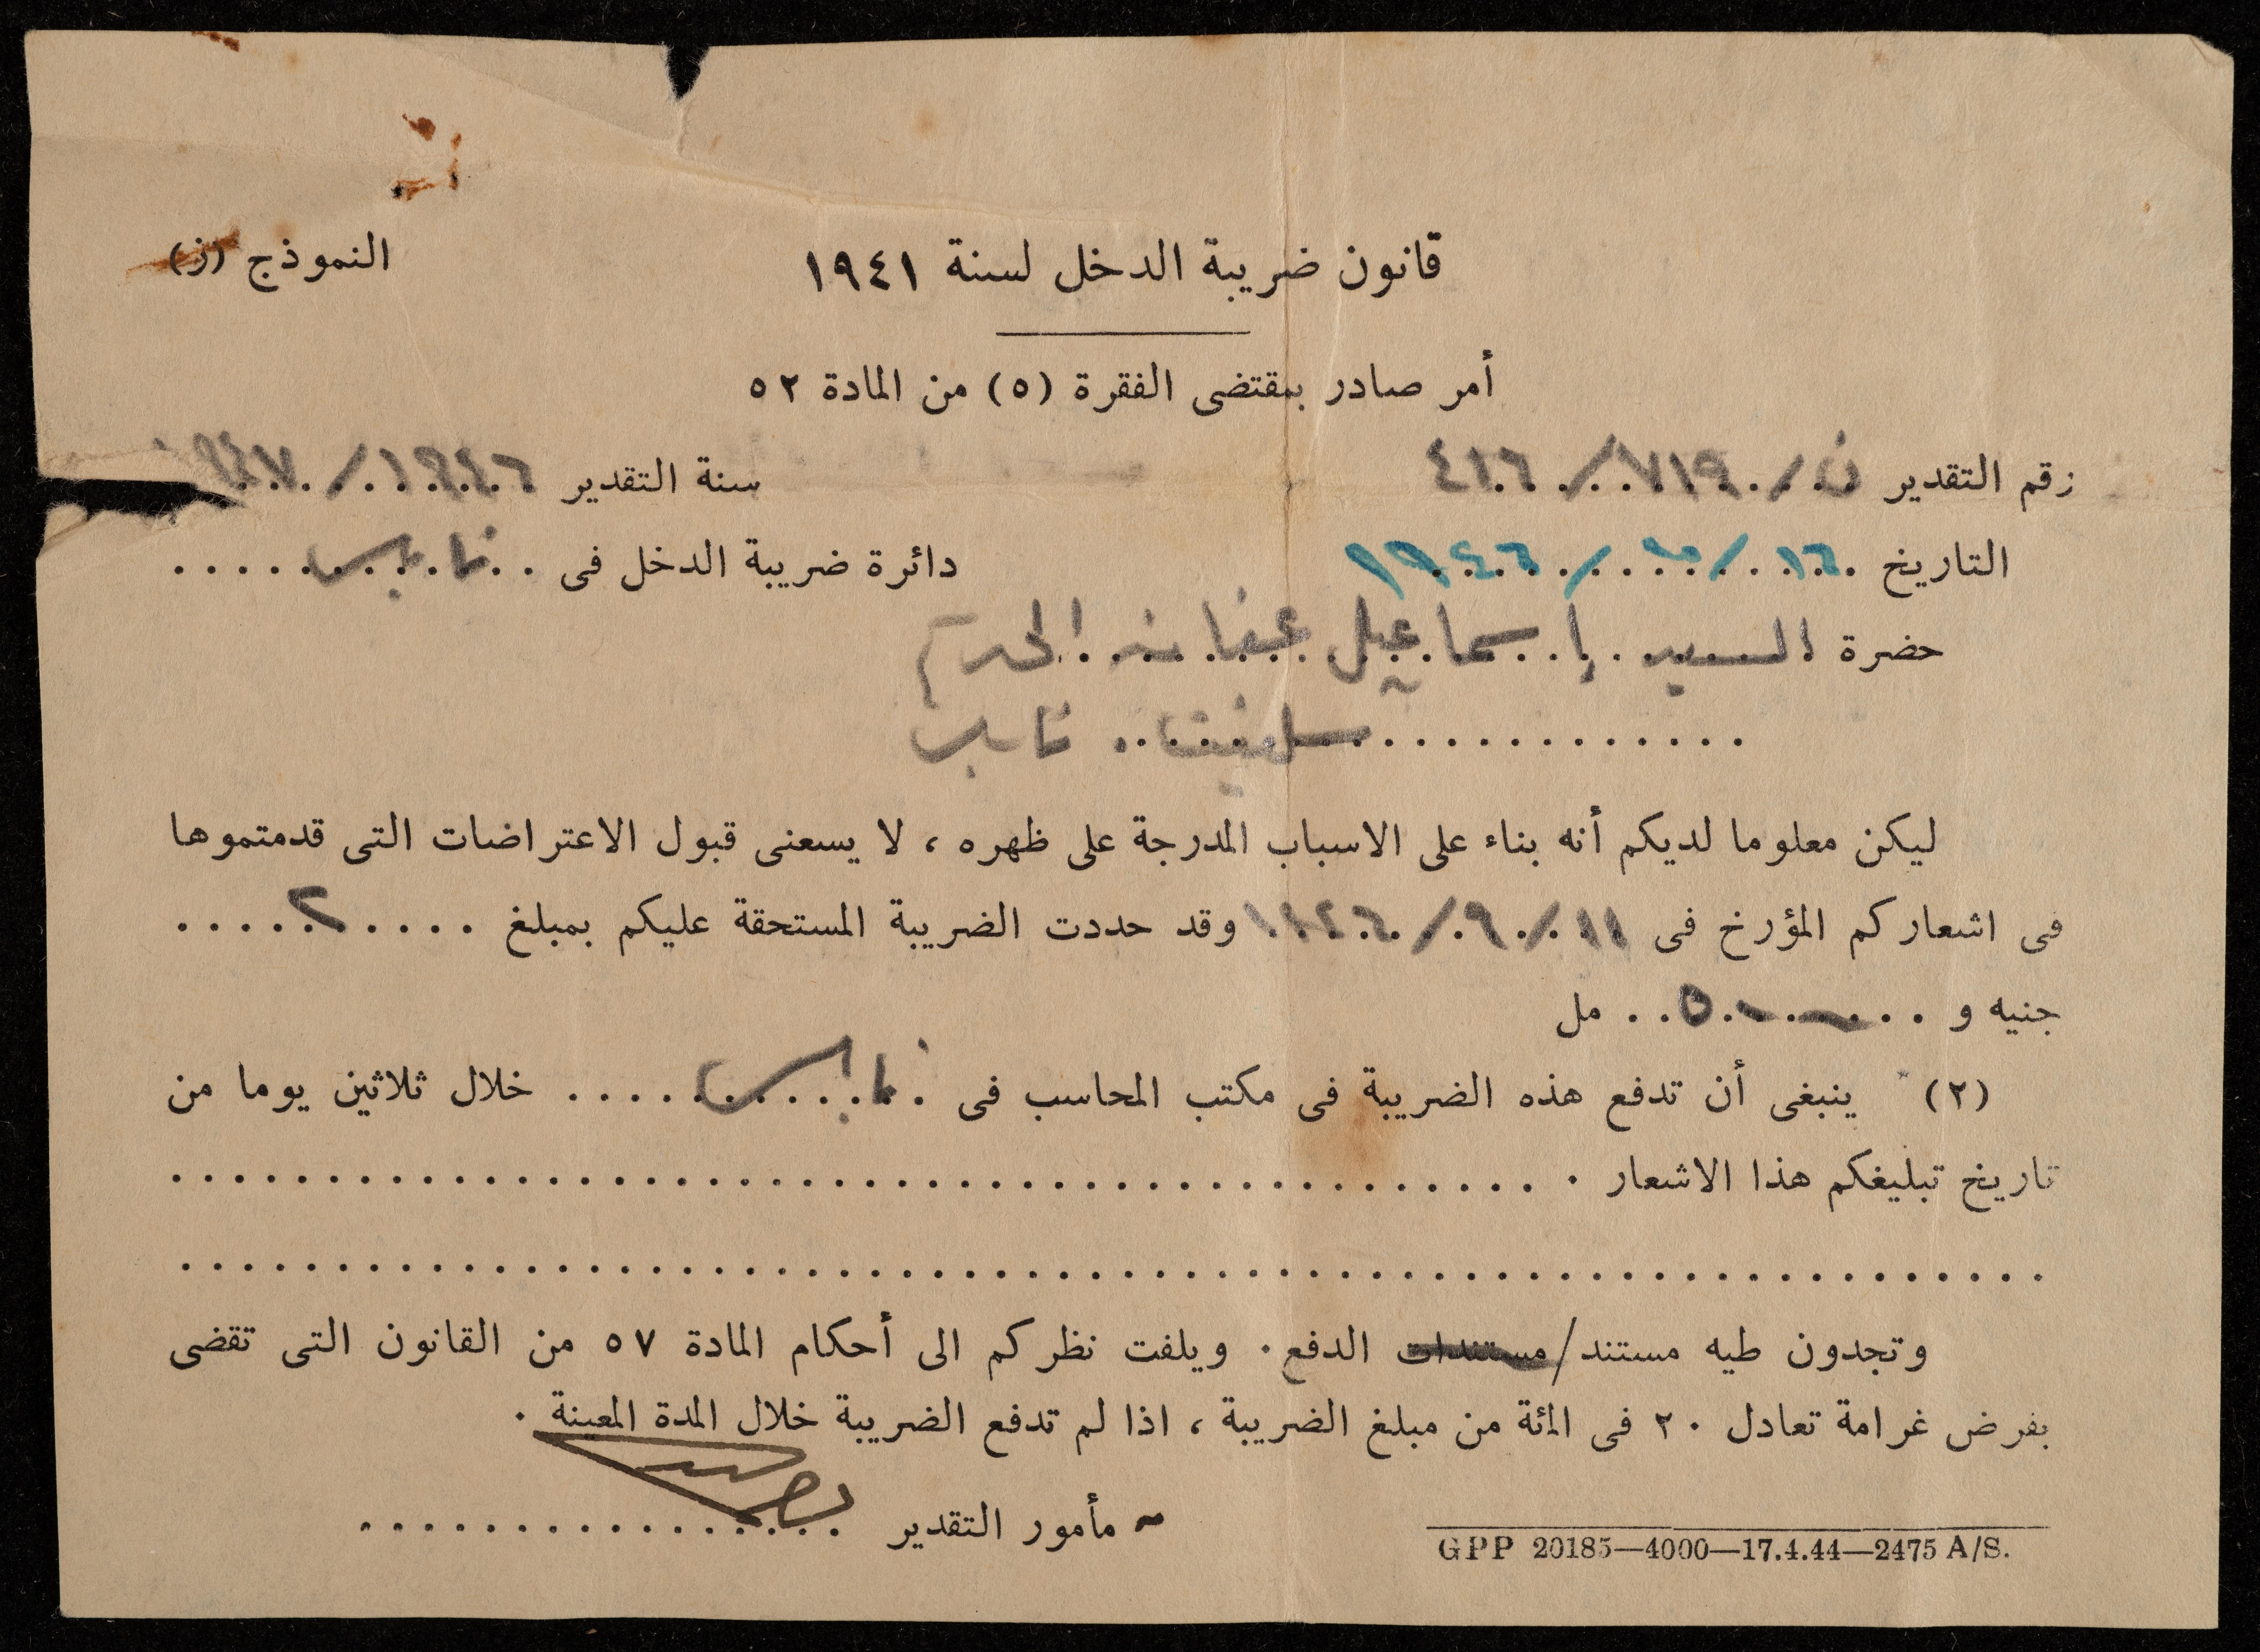 قانون ضريبة الدخل لسنة ١٩٤١
النموذج (ز)
أمر صادر بمقتضى الفقرة (٥) من المادة ٥٢
رقم التقدير ن/٧١٩/٤١٦
سنة التقدير ١٩٤٦/
التاريخ ١٦/ /١٩٤٦
دائرة ضريبة الدخل فى نابلس
حضرة السيد إسماعيل
سلفيت نابلس
ليكن معلوما لديكم أنه بناء على الاسباب المدرجة على ظهره ، لا يسعنى قبول الاعتراضات التى قدمتموها
فى اشعاركم المؤرخ فى ١١/٩/١٩٤٦ وقد حددت الضريبة المستحقة عليكم بمبلغ ٢
جنيه و ٥٠٠ مل
(٢) ينبغى أن تدفع هذه الضريبة فى مكتب المحاسب فى نابلس خلال ثلاثين يوما من
تاريخ تبليغكم هذا الاشعار .
وتجدون طيه مستند/مستندات الدفع . ويلفت نظركم الى أحكام المادة ٥٧ من القانون التى تقضى
بفرض غرامة تعادل ٢٠ فى المئة من مبلغ الضريبة ، اذا لم تدفع الضريبة خلال المدة المعينة .
مأمور التقدير
GPP 20185—4000—17.4.44—2475 A/S.